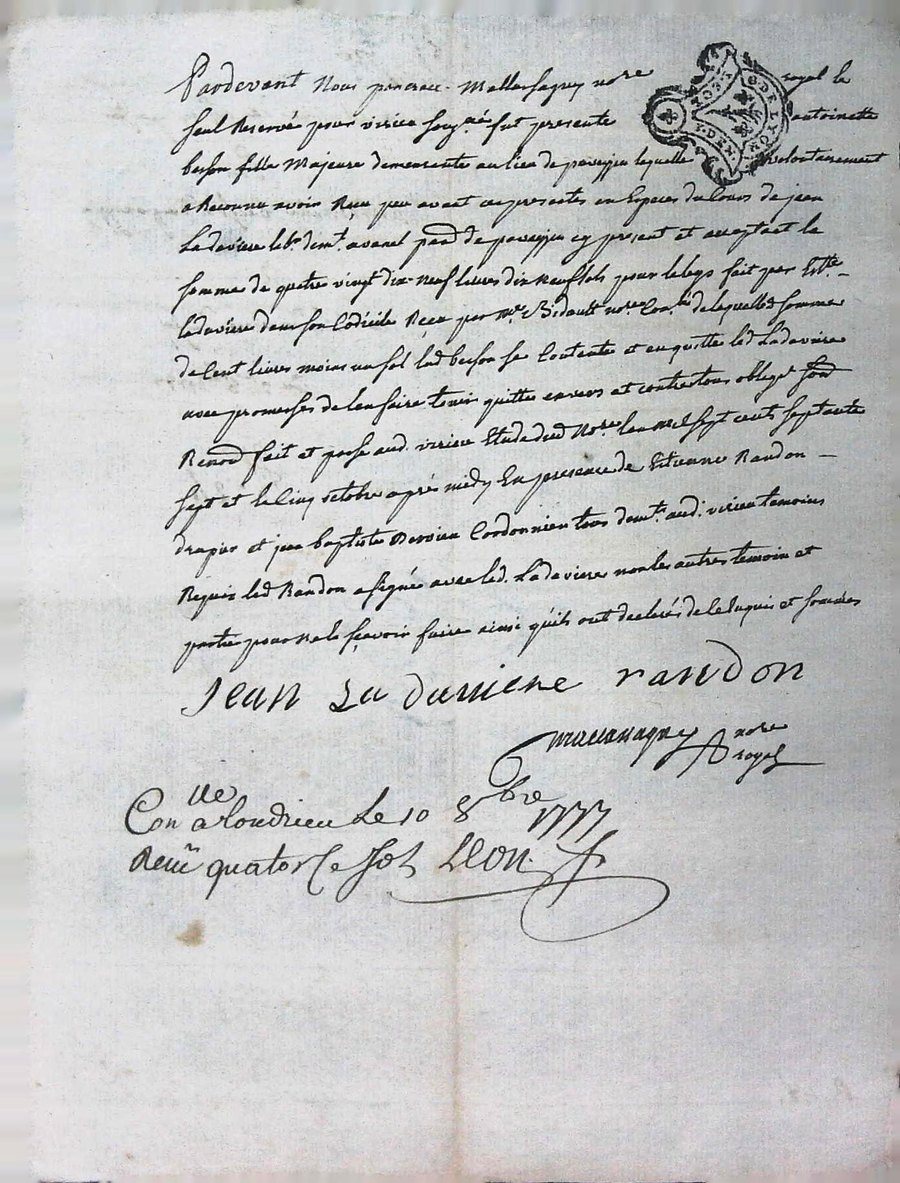 Pardevant Nous pancrace Mallassagny no.re royal le
seul Reservé pour virieu sousné fut presente antoinette
berson fille Majeure demeurente au lieu de pavezin lequelle volontairement
a Reconnu avoir Reçu peu avant ces presentes en Especes du Cours de jean
Ladaviere lab.r dem.t avanel par. de pavezin cy present et acceptant la
somme de quatre vingt dix neuf livres dix neuf sols pour le legs fait par
ladaviere dans son Codicile Reçu par m.re Bidault no.re de lequelle somme
de Cent livres moins un sol lad berson se Contente et en quitte led Ladaviere
avec promesses de len faire tenir quitte envers et contre tous oblige.
Renon.d fait et passé aud. virieu Etude dud No.re lan mil sept cents septante
sept et le Cinq octobre aprés midy En presence de Estienne Randon
drapier et jean baptiste Cordonnier tous dem.ts aud. virieu temoins
Requis led Randon a signé avec led. Ladaviere non les autres temoin et
partie pour ne le sçavoir faire ainsi qu'ils ont declarés de le Enquis et sommés
Jean La daviere randon
mallassagny no.re
royal
Con.lle a Condrieu Le 10 8bre 1777
Reçu quatorse sols Leon
G. DE LYON